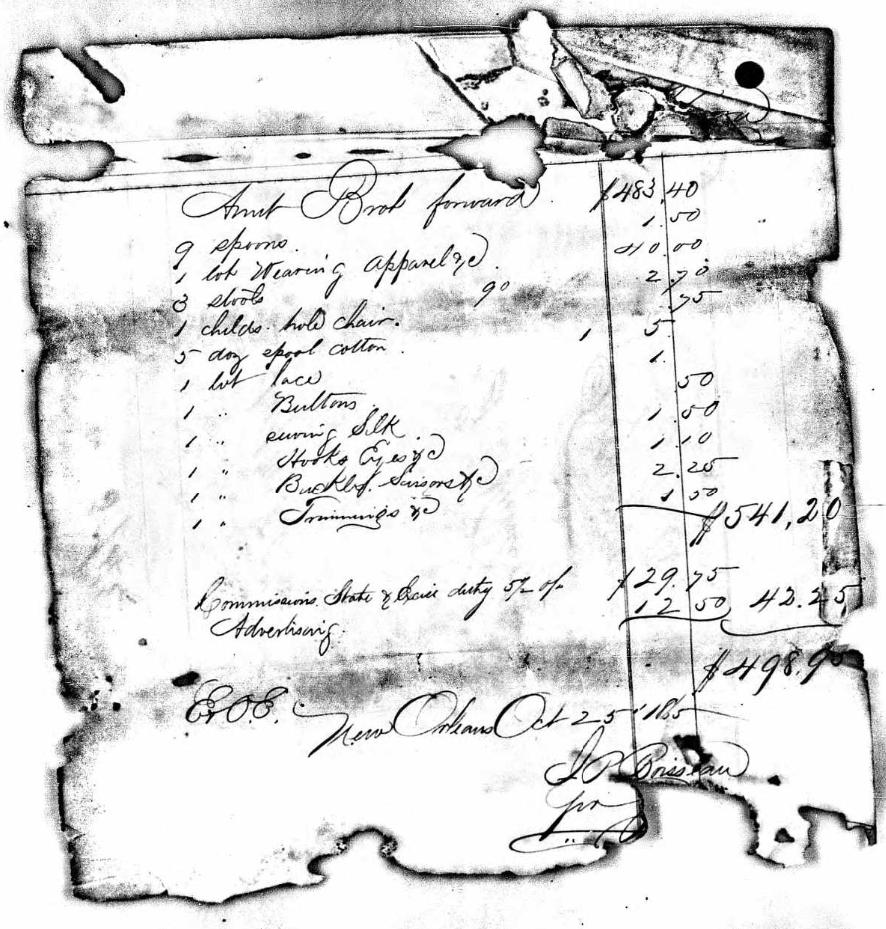 Amt Brot forward $483,40
9 spoons. 1.50
1 lot Wearing apparel &c 40.00
3 stools 90 2.70
1 childs hold chair. .75
5 doz spool cotton. 1 5
1 lot lace 1.
1 " Buttons .50
1 " sewing Silk 1.50
1 " Hooks Eyes &c 1.10
1 " Buckles. Sissors &c 2.25
1 " Trimmings &c 1.50
$541,20
Commissions. State & duty 5/- o/- $29.75
Advertising. 12.50 42.25
$498.95
E.O.E. New Orleans Oct 25 185
J P Boisseau